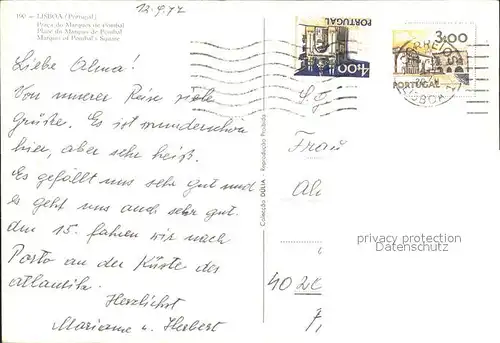 12.9.77
190 - LISBOA (Portugal)
Praça do Marques de Pombal
Place du Marques de Pombal
Marques of Pombal's Square
Liebe Alma!
Von unserer Reise viele
Grüße. Es ist wunderschön
hier, aber sehr heiß.
Es gefällt uns sehr gut und
es geht uns auch sehr gut.
Am 15. fahren wir nach
Porto an der Küste des
Atlantik.
Herzlichst
Marianne u. Herbert
Colecção DÚLIA - Reprodução Proibida
PORTUGAL
4$00
3$00
PORTUGAL
LISBOA
Frau
Al
privacy protection
Datenschutz
40 20